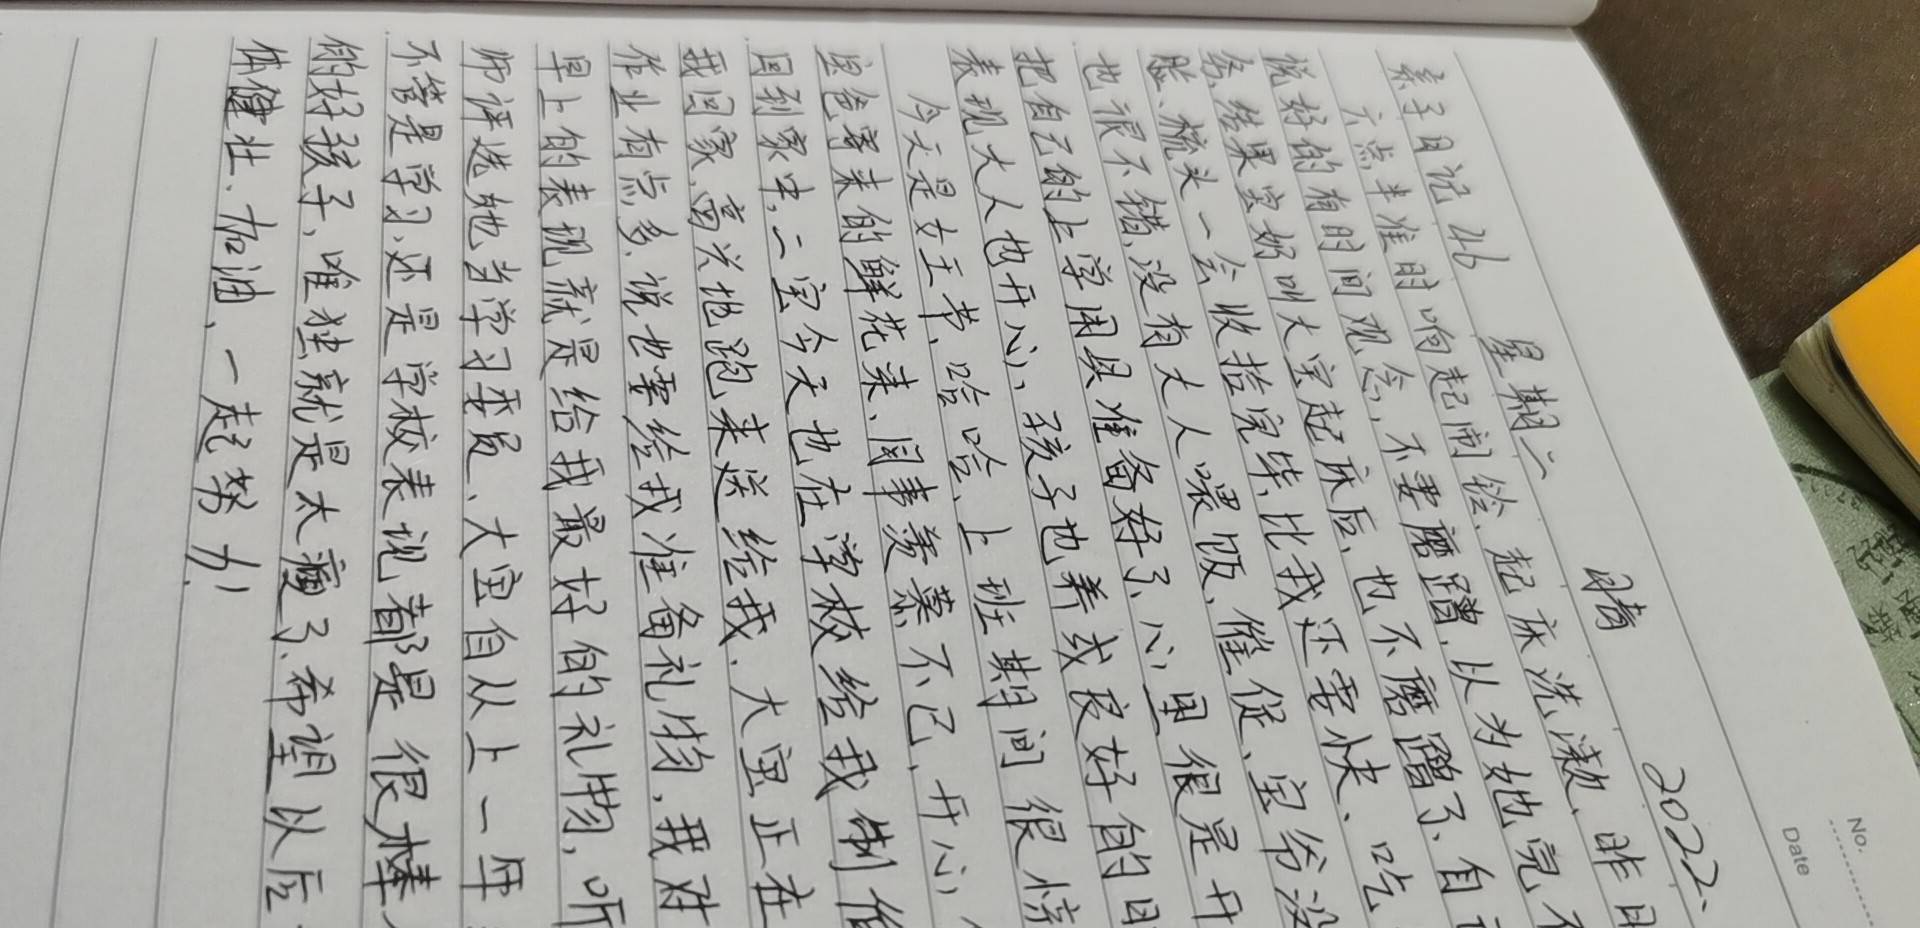 No.
Date
亲子日记 46 星期二 晴 2022.
六点半准时响起闹铃、起床洗漱、昨日
说好的有时间观念,不要磨蹭,以为她完不
结果宝妈叫大宝起床后、也不磨蹭了、自
脸、梳头一会收拾完毕、比我还要快、吃
也很不错、没有大人喂饭、催促、宝爷没
把自己的上学用具准备好了、心里很是开
表现大人也开心、孩子也养成良好的日
今天是女王节、哈哈、上班期间很惊
宝爸寄来的鲜花来、同事羡慕不已,开心
回到家中,二宝今天也在学校给我制作
我回家,高兴地跑来送给我.大宝正在
作业有点多,说也要给我准备礼物,我对
早上的表现就是给我最好的礼物,听
师评选她当学习委员、大宝自从上一年
不管是学习、还是学校表现都是很棒
的好孩子,唯独就是太瘦了、希望以后
体健壮、加油、一起努力!